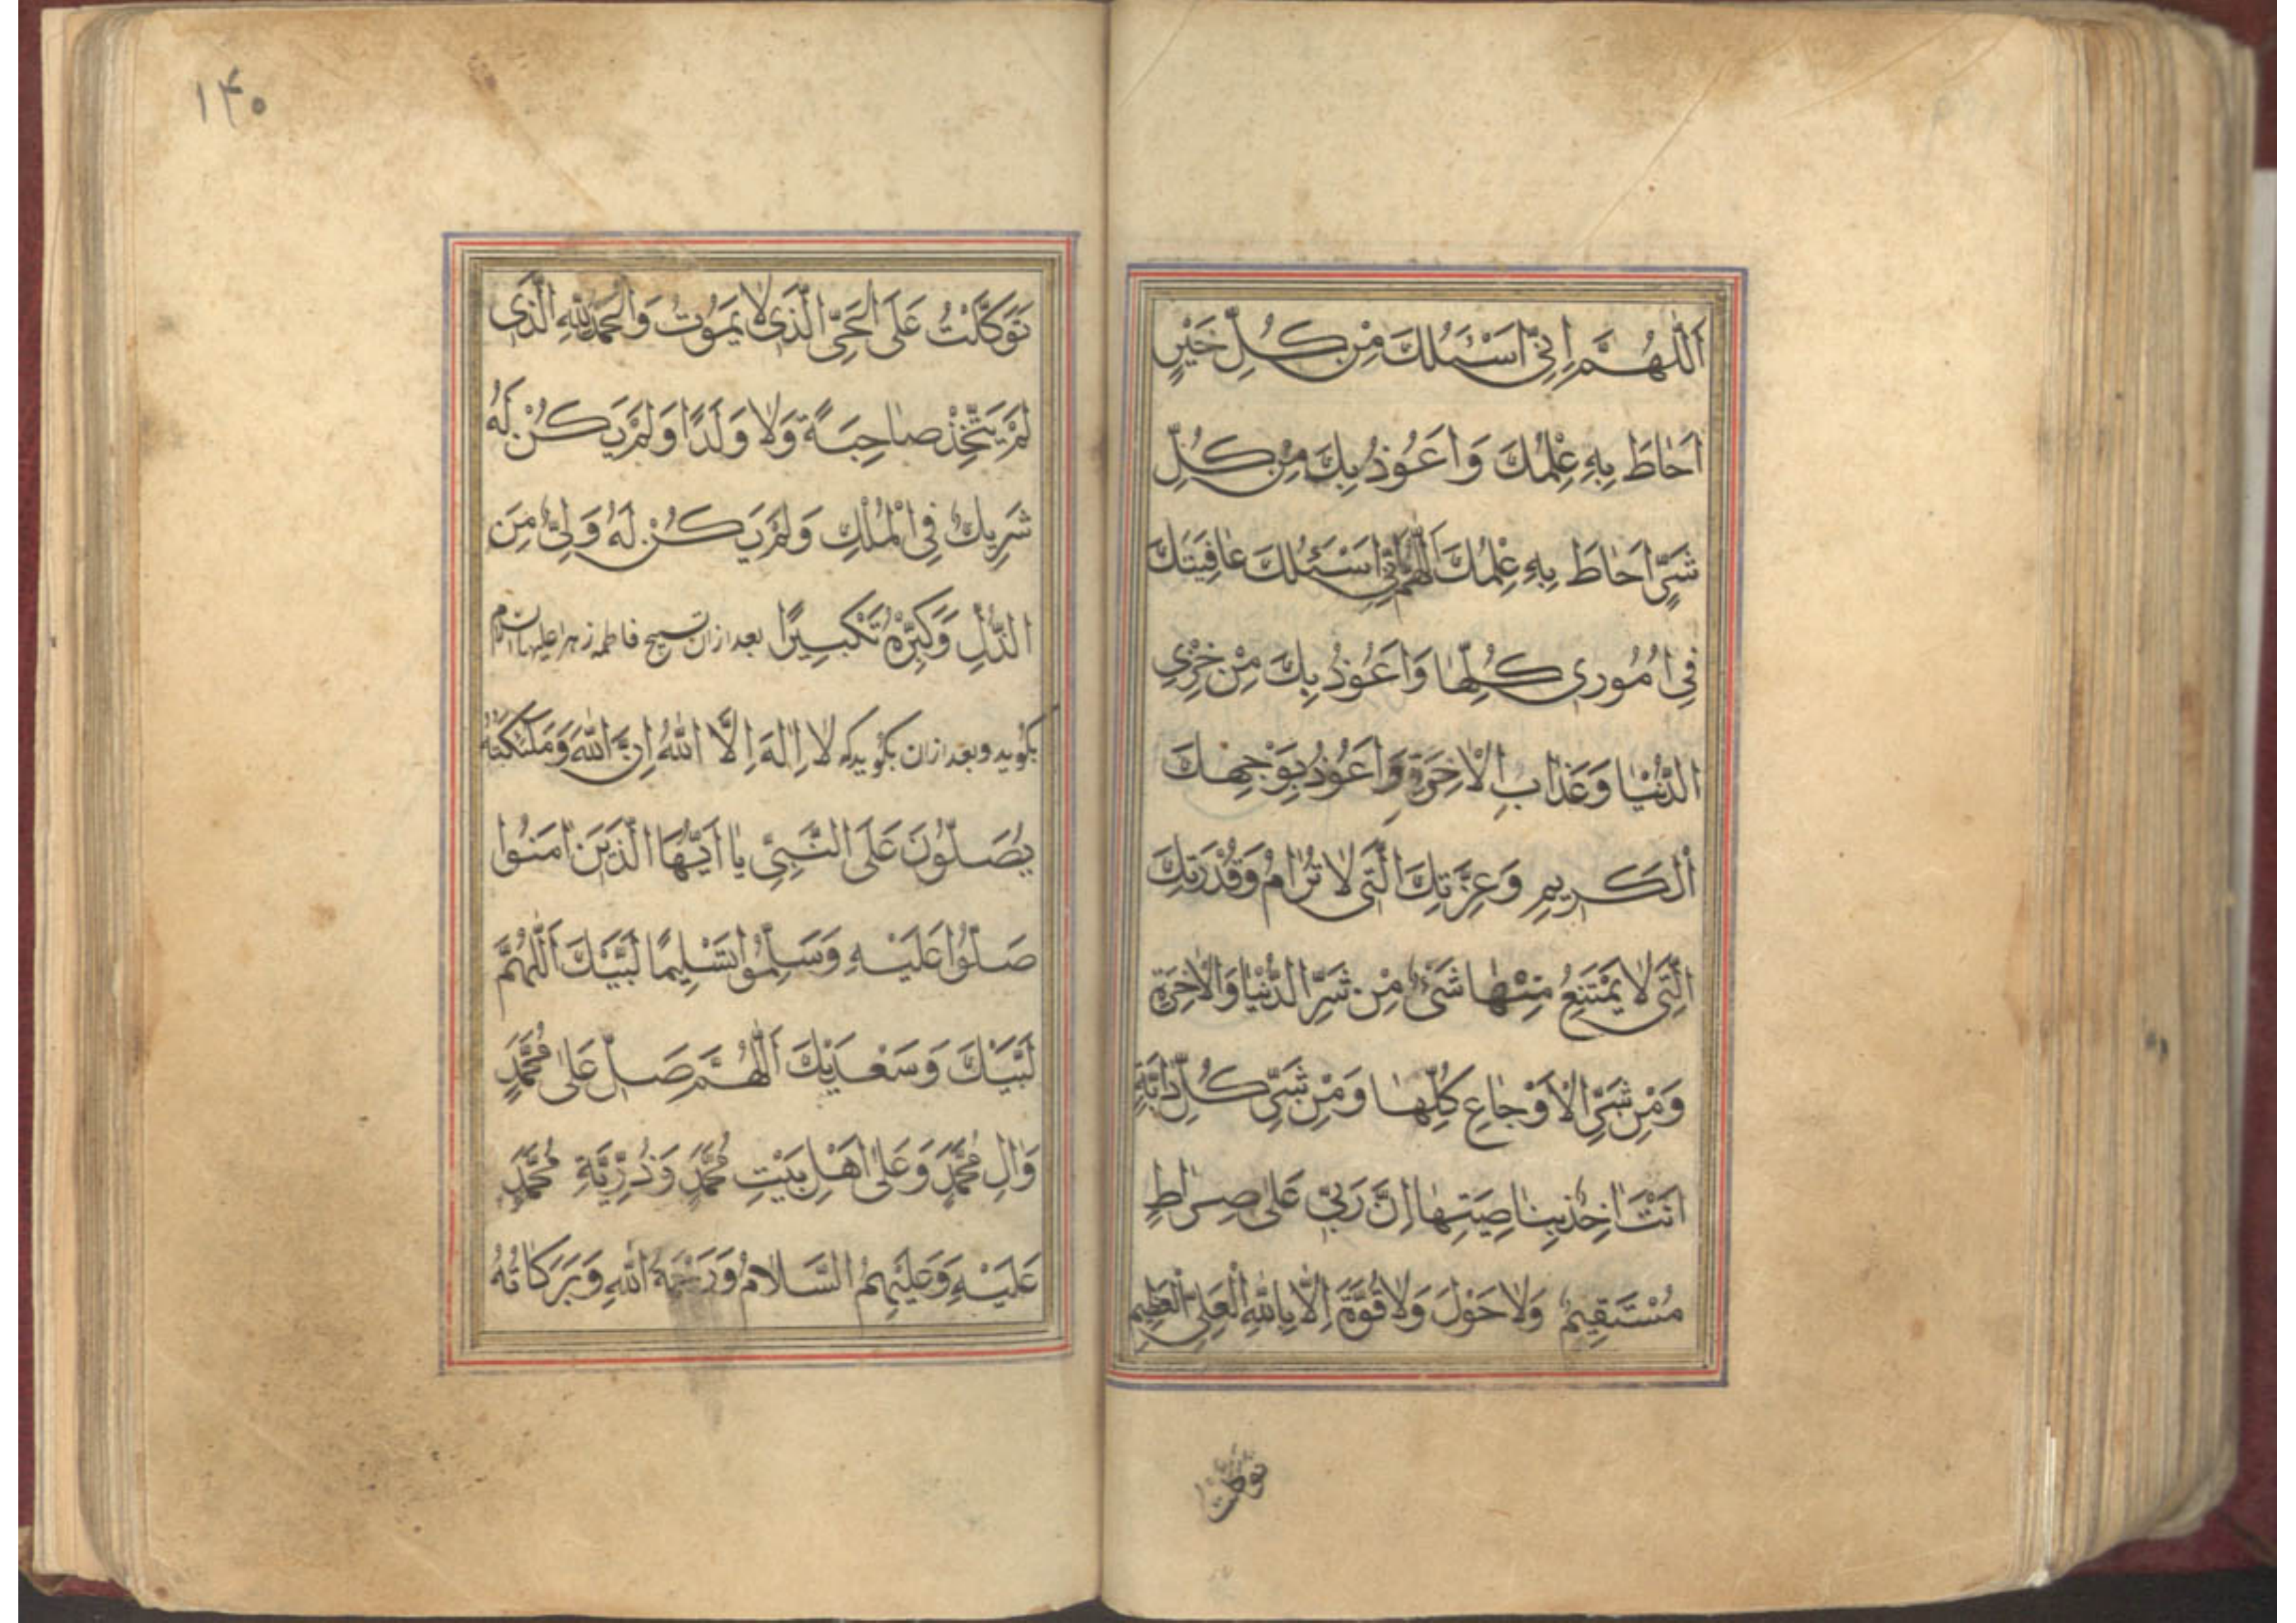 اَللّٰهُمَّ اِنّی اَسْئَلُكَ مِنْ كُلِّ خَیْرٍ
اَحٰاطَ بِهِ عِلْمُكَ وَ اَعُوذُ بِكَ مِنْ كُلِّ
شَرٍّ اَحٰاطَ بِهِ عِلْمُكَ اَللّٰهُمَّ اِنّی اَسْئَلُكَ عٰافِیَتَكَ
فِی اُمُوری كُلِّهٰا وَ اَعُوذُ بِكَ مِنْ خِزْیِ
الدُّنْیٰا وَ عَذٰابِ الْاٰخِرَةِ وَ اَعُوذُ بِوَجْهِكَ
الْكَریمِ وَ عِزَّتِكَ الَّتی لٰا تُرٰامُ وَ قُدْرَتِكَ
الَّتی لٰا یَمْتَنِعُ مِنْهٰا شَیْءٌ مِنْ شَرِّ الدُّنْیٰا وَ الْاٰخِرَةِ
وَ مِنْ شَرِّ الْاَوْجٰاعِ كُلِّهٰا وَ مِنْ شَرِّ كُلِّ دٰابَّةٍ
اَنْتَ اٰخِذٌ بِنٰاصِیَتِهٰا اِنَّ رَبّی عَلٰی صِرٰاطٍ
مُسْتَقیمٍ وَ لٰا حَوْلَ وَ لٰا قُوَّةَ اِلّٰا بِاللّٰهِ الْعَلِیِّ الْعَظیمِ
توکلت
۱۴۰
تَوَكَّلْتُ عَلَی الْحَیِّ الَّذی لٰا یَمُوتُ وَ الْحَمْدُ لِلّٰهِ الَّذی
لَمْ یَتَّخِذْ صٰاحِبَةً وَ لٰا وَلَدًا وَ لَمْ یَكُنْ لَهُ
شَریكٌ فِی الْمُلْكِ وَ لَمْ یَكُنْ لَهُ وَلِیٌّ مِنَ
الذُّلِّ وَ كَبِّرْهُ تَكْبیرًا بعد از ان تسبیح فاطمه زهرا علیها السلام
بكوید و بعد از ان بكوید كه لٰا اِلٰهَ اِلَّا اللّٰهُ اِنَّ اللّٰهَ وَ مَلٰئِكَتَهُ
یُصَلُّونَ عَلَی النَّبِیِّ یٰا اَیُّهَا الَّذینَ اٰمَنُوا
صَلُّوا عَلَیْهِ وَ سَلِّمُوا تَسْلیمًا لَبَّیْكَ اَللّٰهُمَّ
لَبَّیْكَ وَ سَعْدَیْكَ اَللّٰهُمَّ صَلِّ عَلٰی مُحَمَّدٍ
وَ اٰلِ مُحَمَّدٍ وَ عَلٰی اَهْلِ بَیْتِ مُحَمَّدٍ وَ ذُرِّیَّةِ مُحَمَّدٍ
عَلَیْهِ وَ عَلَیْهِمُ السَّلٰامُ وَ رَحْمَةُ اللّٰهِ وَ بَرَكٰاتُهُ